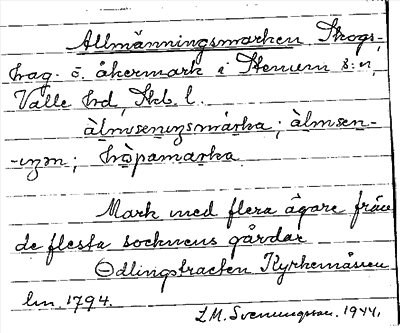 Allmänningsmarken. Skogs-,
hag- o. åkermark i Stenum s:n,
Valle hd, Skb. l.
àlmseningsmárka; àlmsen-
-ıŋən; hòpamarka
Mark med flera ägare från
de flesta socknens gårdar
Odlingstrakten Kyrkemåsen
lm. 1794.
L.M. Svenungsson. 1944.